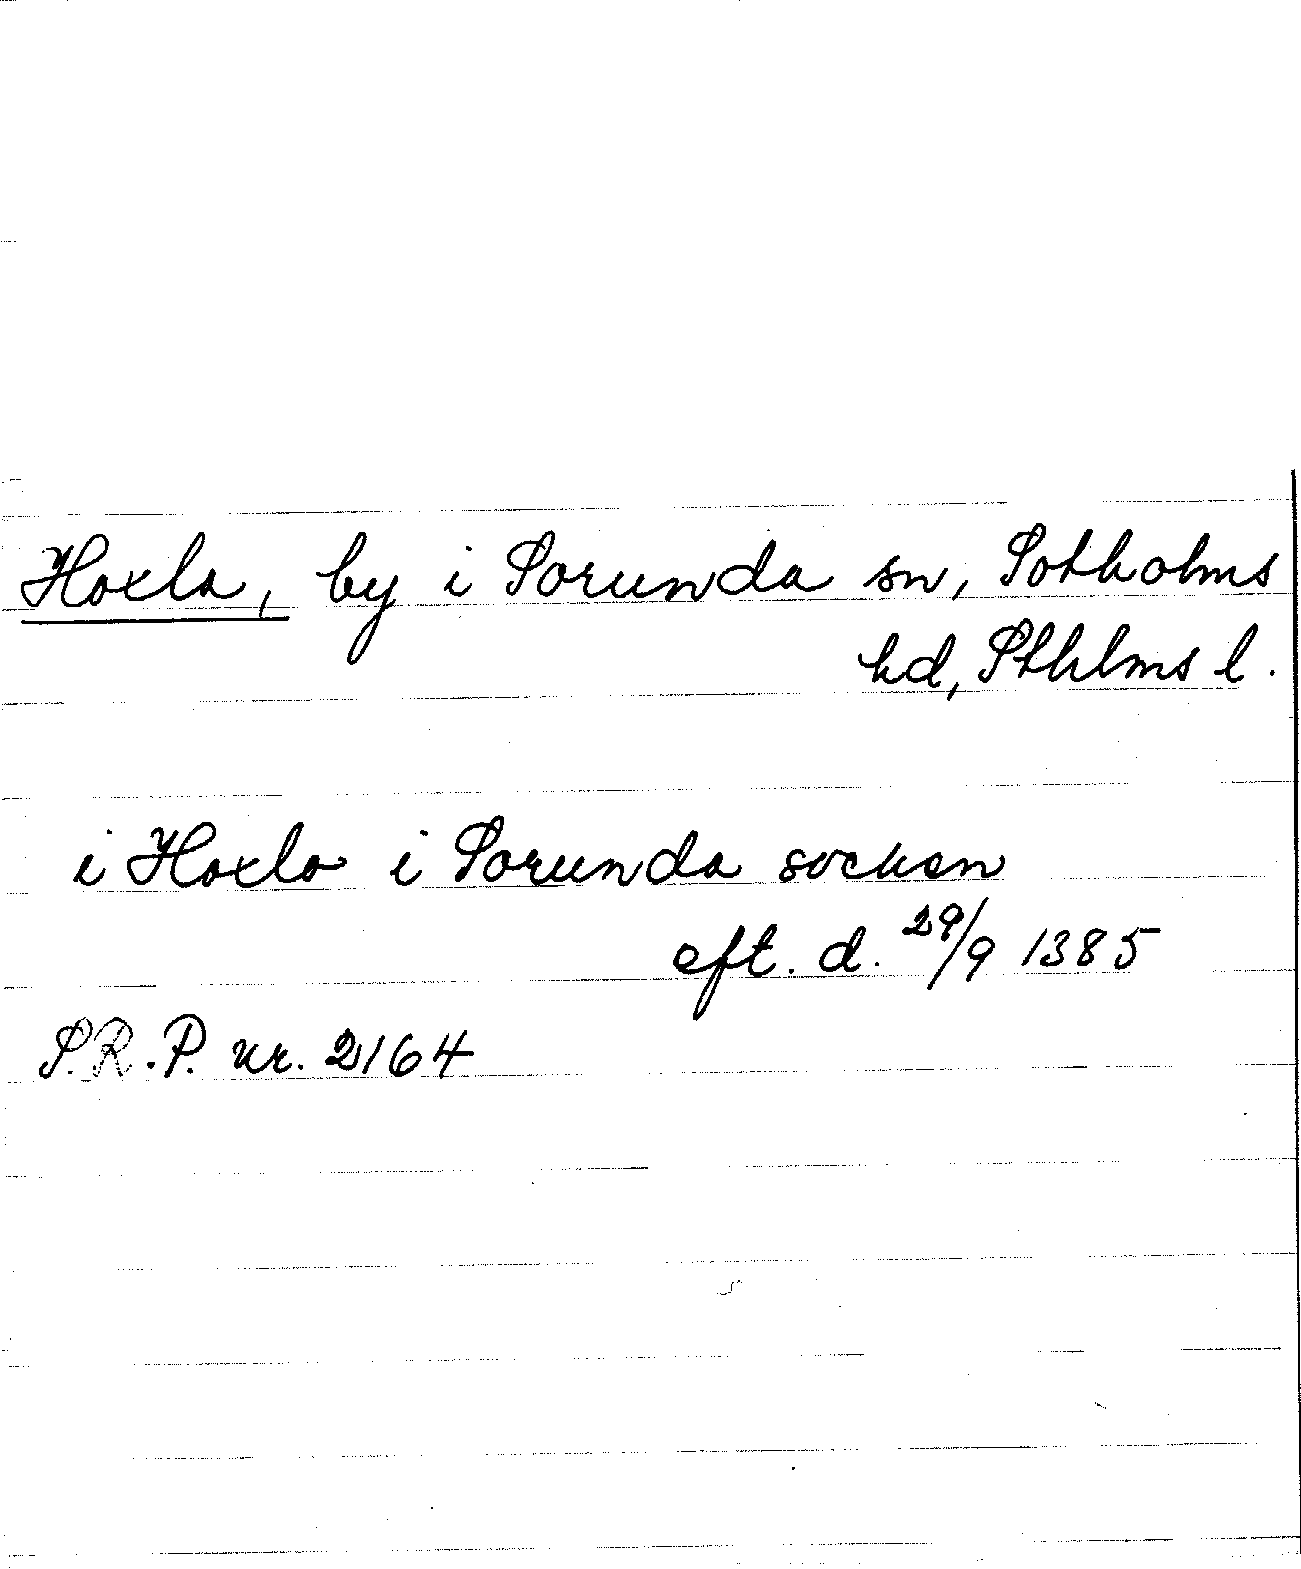 Hoxla, by i Sorunda sn, Sotholms
hd, Sthlms l.
i Hoxla i Sorunda socken
eft. d. 29/9 1385
S.R.P. nr. 2164